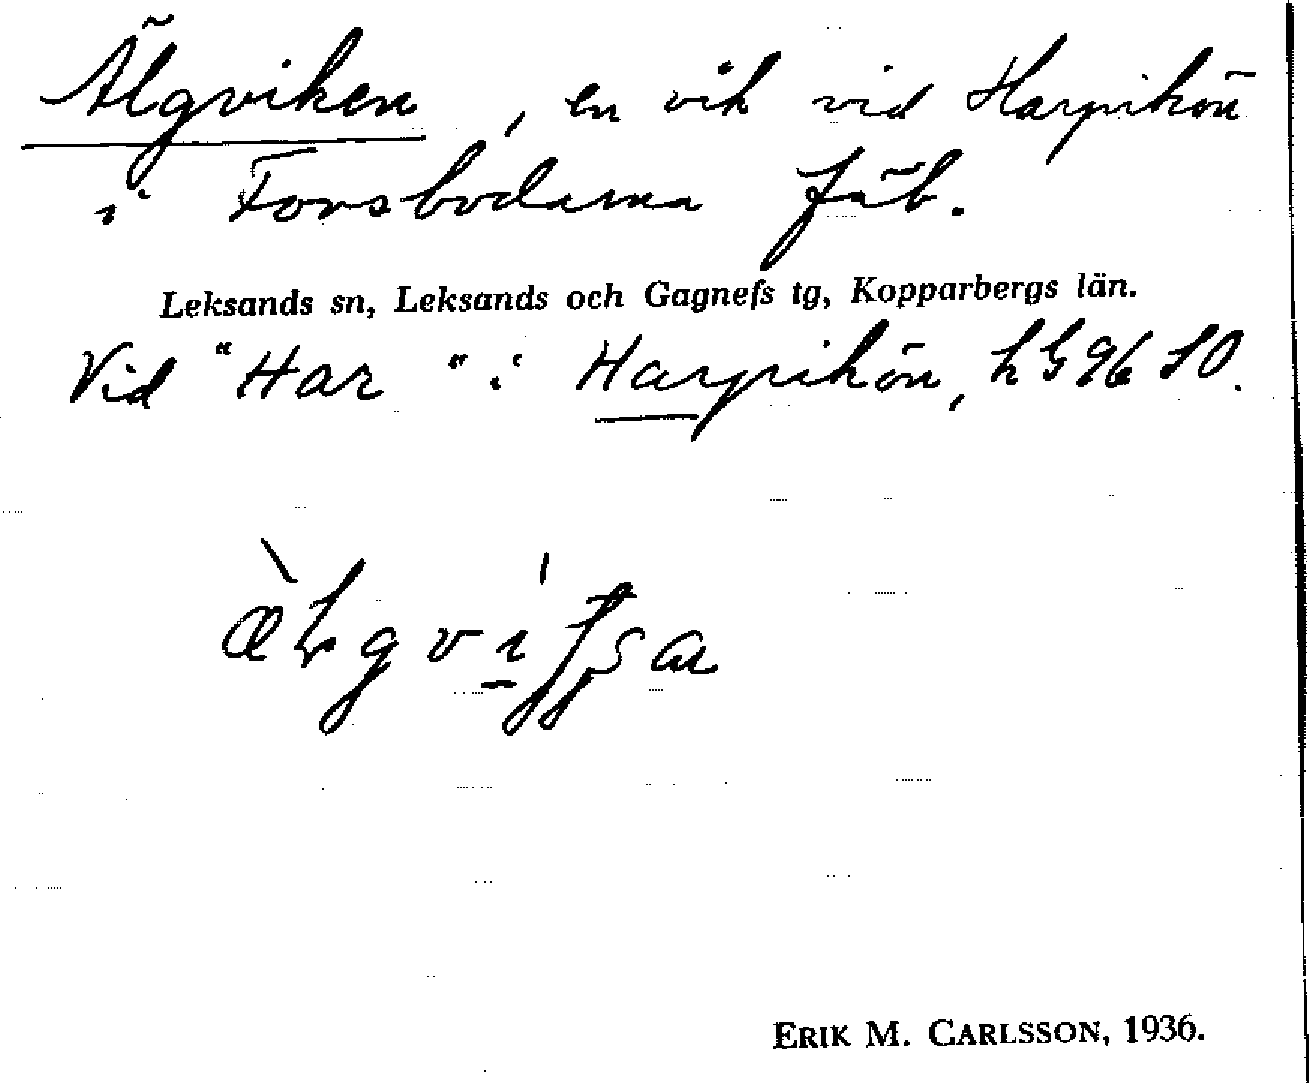 Älgviken, en vik vid Harpikön
i Forsbodarna fäb.
Leksands sn, Leksands och Gagnefs tg, Kopparbergs län.
Vid "Har" i Harpikön, h G 96 SO.
ERIK M. CARLSSON, 1936.